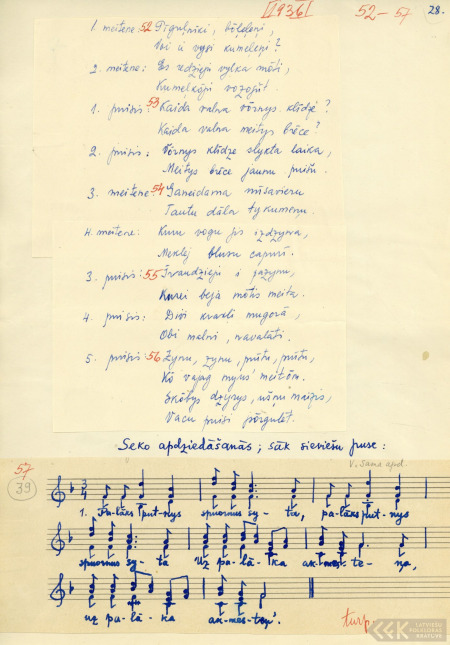 [1936] 52-57 28.
1. meitene: 52 Pīguļnīki, bōleleņi,
Voi ir vysi kumeleņi?
2. meitene: Es redzieju vylka mōti,
Kumeļkōji vozojūt.
1. puisis: 53 Kaida valna vōrnys klīdze?
Kaida valna meitys brēce?
2. puisis: Vōrnys klīdze slykta laika,
Meitys brēce jaunu puišu.
3. meitene: 54 Ganeidama
Tautu dāla kumeņu.
4. meitene: Kuru vogu jis izdzyna,
Meklej blusu capurī.
3. puisis: 55 i pazynu,
Kurei beja mōtis meita.
4. puisis: Divi krakli mugorā,
Obi malni, navalāti.
5. puisis: 56 Zynu, zynu, puišu, puišu,
Kō vajag myusu meitom.
Skōbys dzyrys, maizis,
Vacu puiši pōrgulēt.
Seko apdziedāšanās; sāk sieviešu puse:
57
39
V. Sama apd.
1. putnys spuornus sy- ta, pa-lāks putnys
spuornus sy- ta Uz pa- lā- ka ak-mes- te- ņa,
uz pa- lā- ka ak-mes-teņ'.
turp.
LATVIEŠU FOLKLORAS KRĀTUVE